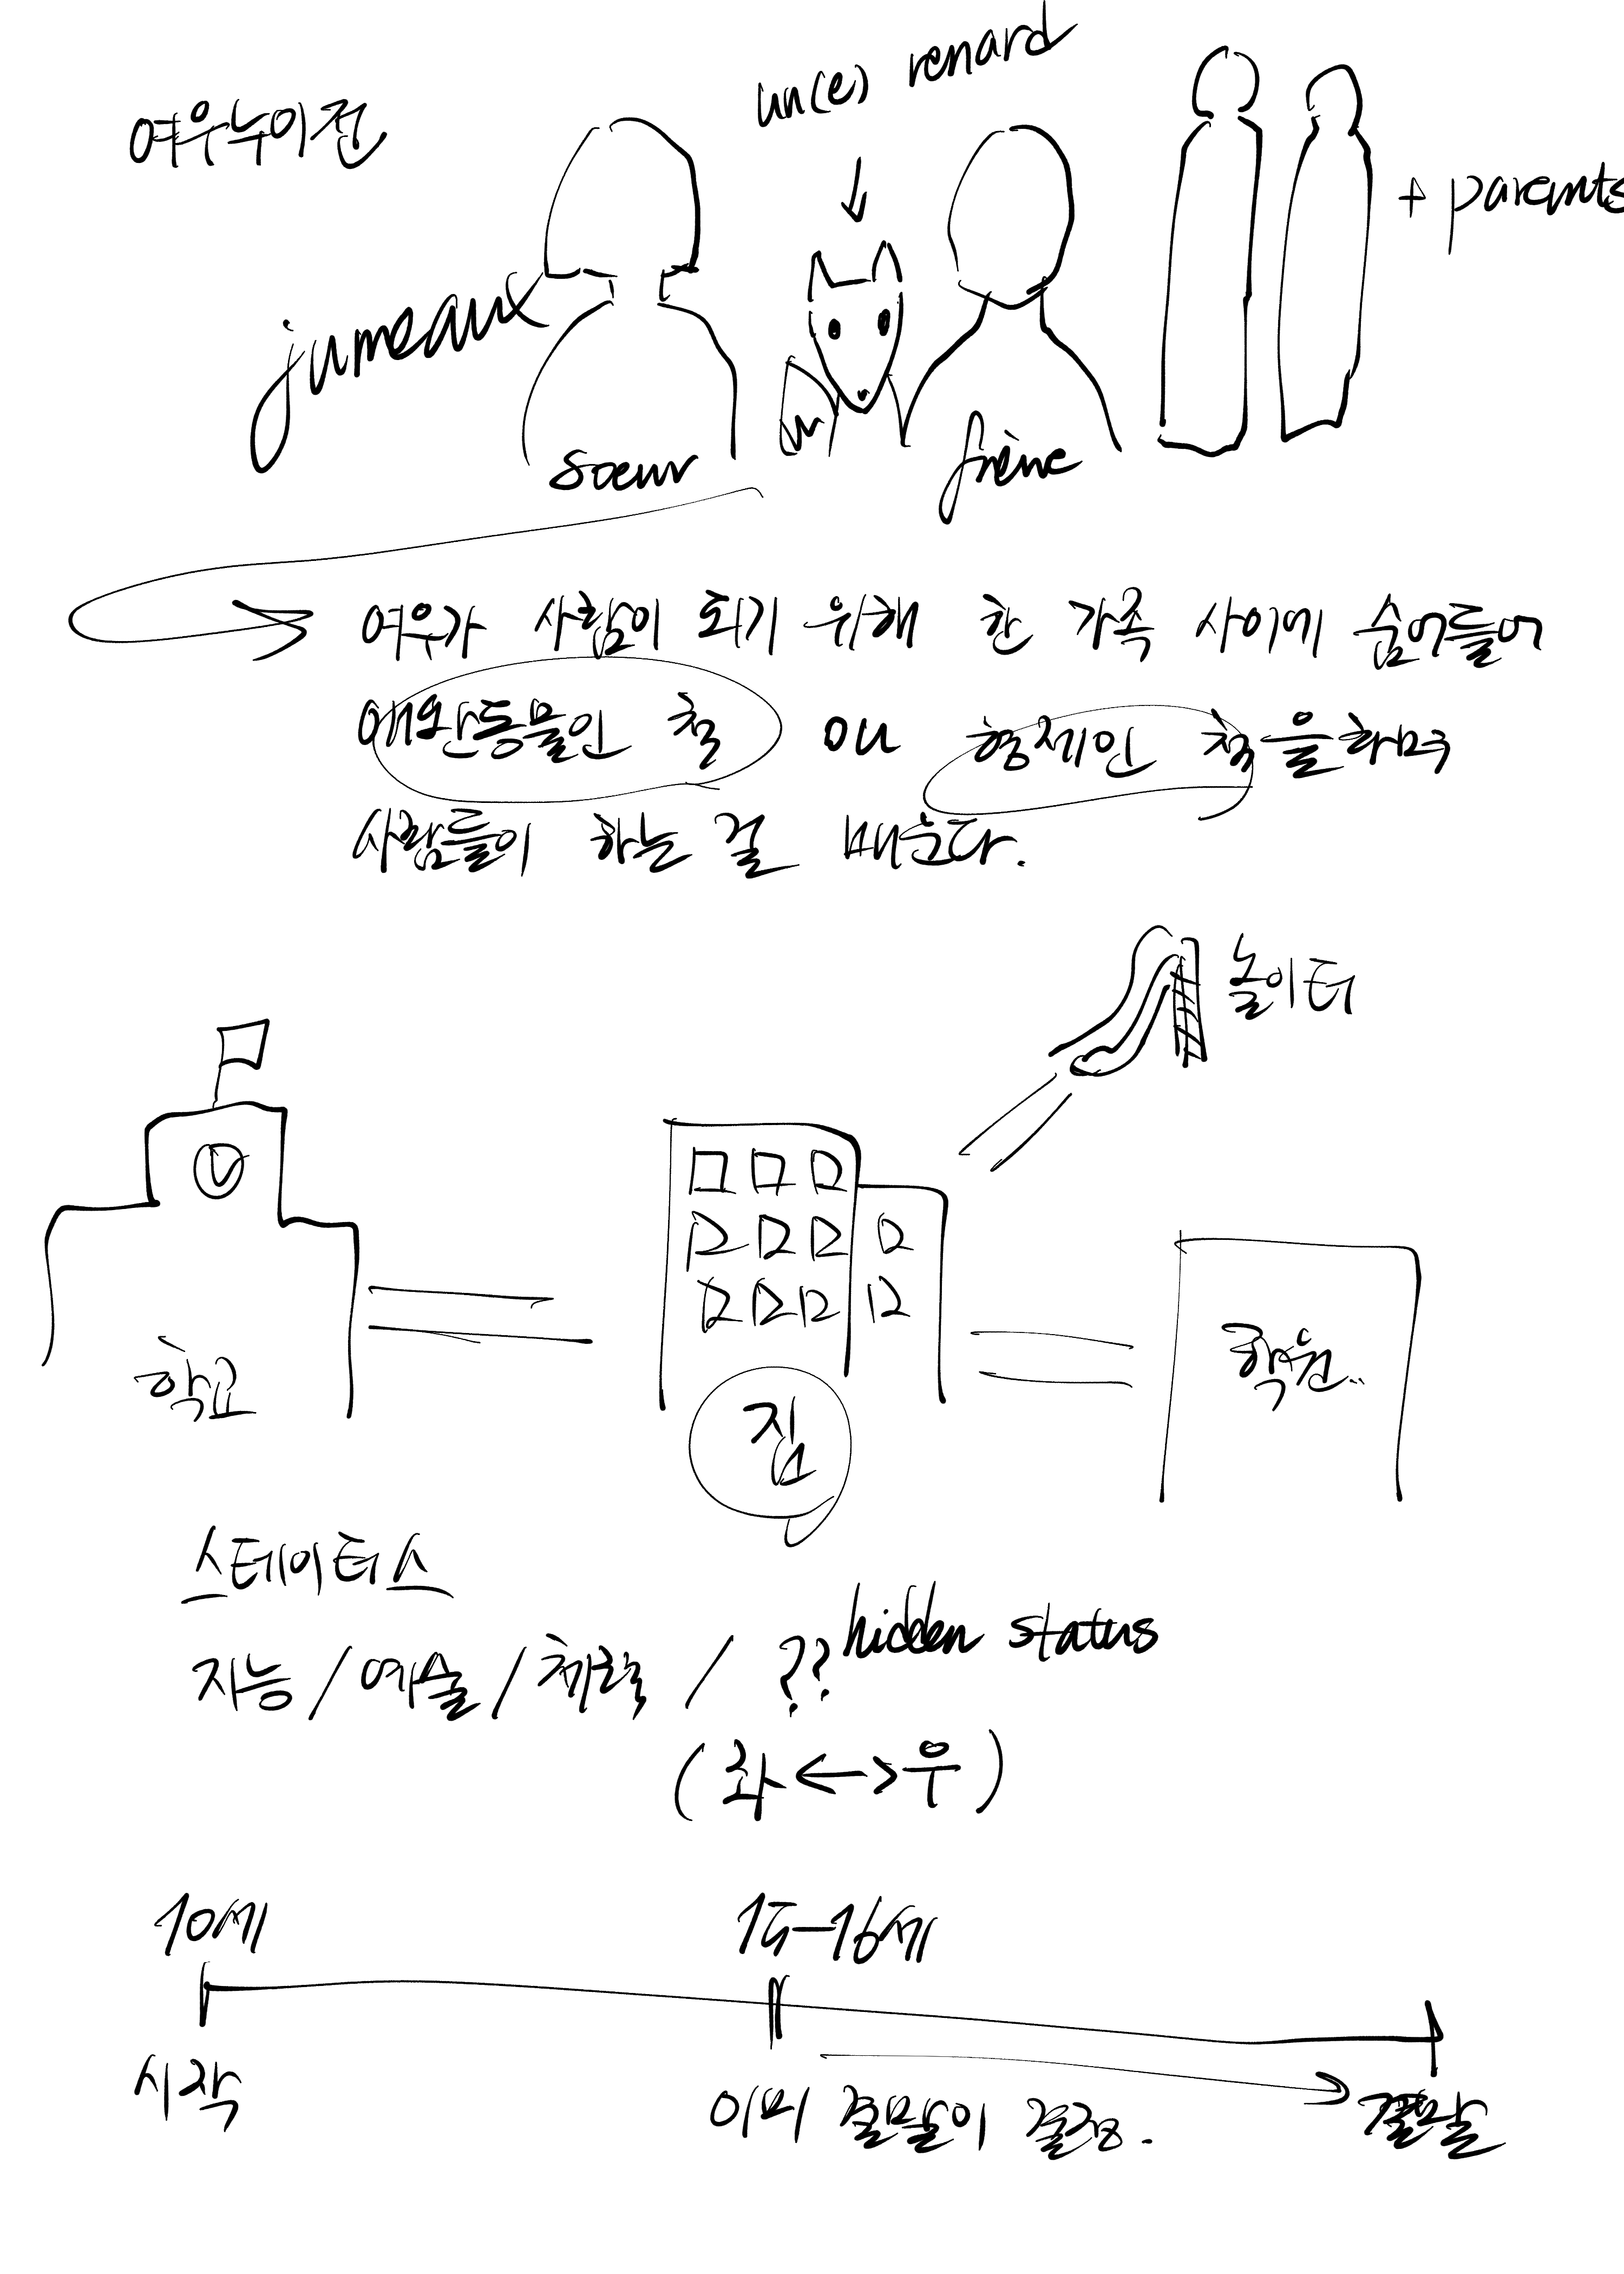 여우누이전
un(e) renard
+ parents
jumeaux
soeur
frère
여우가 사람이 되기 위해 한 가족 사이에 숨어들어
애완동물인 척 ou 형제인 척을하며
사람들이 하는 걸 배운다.
놀이터
학교
집
학원..
스테이터스
지능/예술/체력 / ?? hidden status
(좌<->우)
10세
15-16세
시작
이미 결말이 결정.
결말